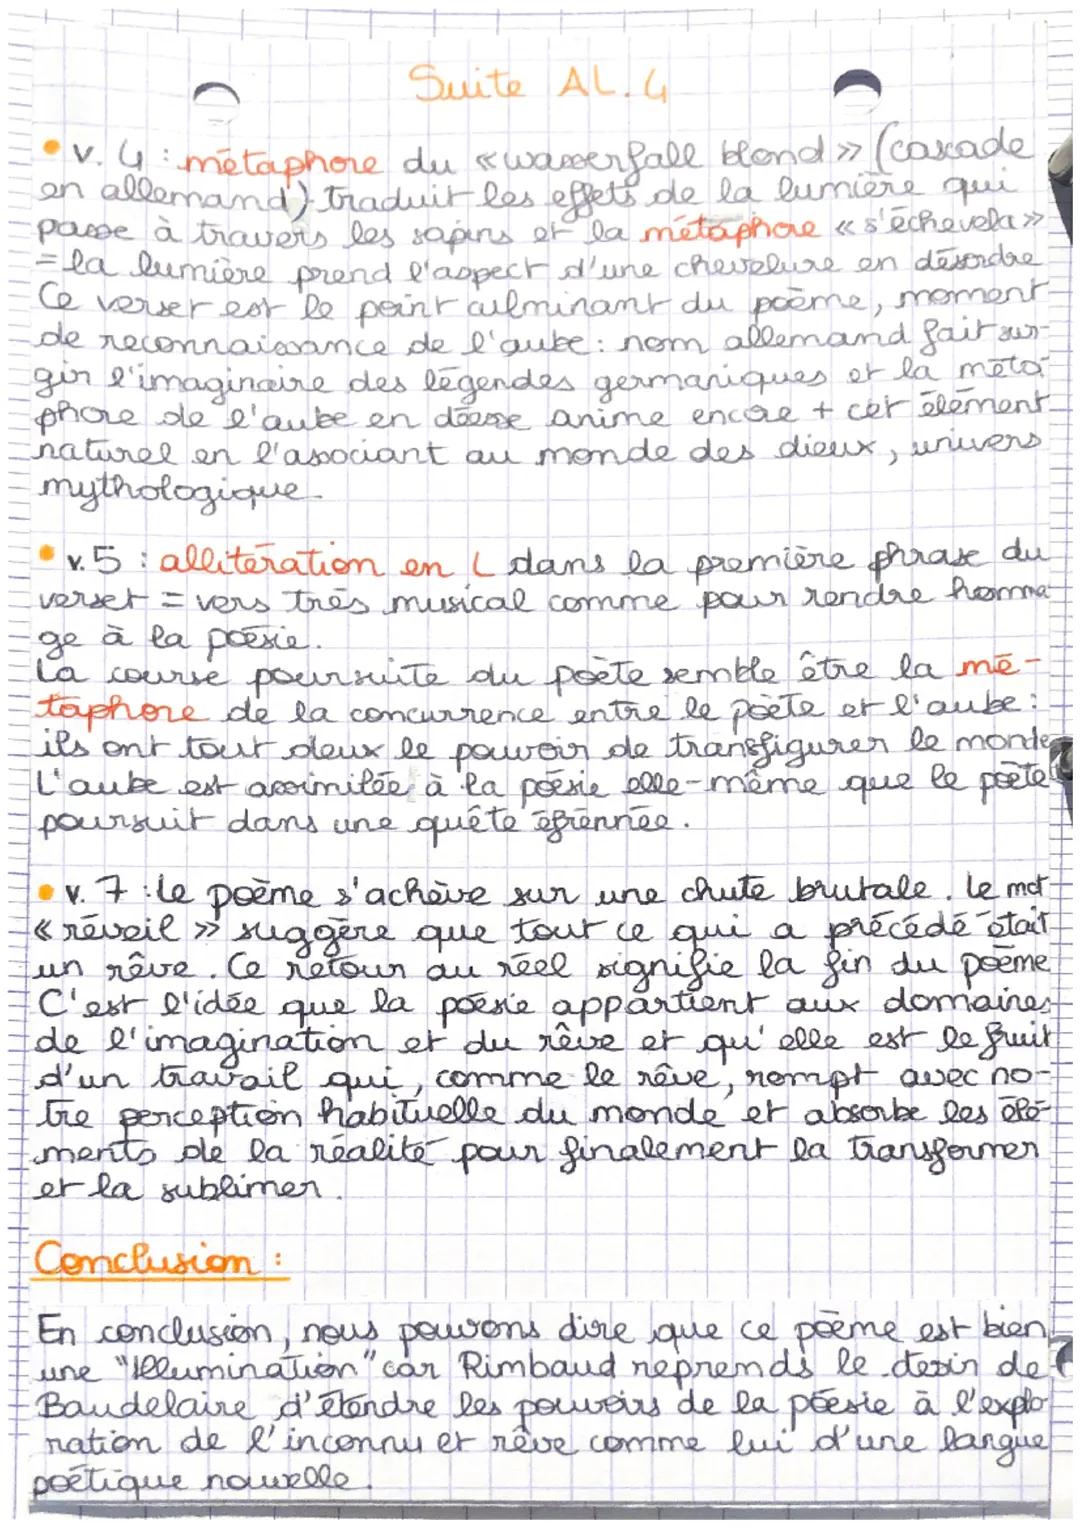 Suite AL.4
• v. 4 : métaphore du « wasserfall blond » (cascade
en allemand) traduit les effets de la lumière qui
passe à travers les sapins et la métaphore « s'échevela »
= la lumière prend l'aspect d'une chevelure en désordre
Ce verset est le point culminant du poème, moment
de reconnaissance de l'aube : nom allemand fait sur-
gir l'imaginaire des légendes germaniques et la méta-
phore de l'aube en déesse anime encore + cet élément
naturel en l'associant au monde des dieux, univers
mythologique.
• v. 5 : allitération en L dans la première phrase du
verset = vers très musical comme pour rendre homma-
ge à la poésie.
La course poursuite du poète semble être la mé-
taphore de la concurrence entre le poète et l'aube :
ils ont tout deux le pouvoir de transfigurer le monde
L'aube est assimilée à la poésie elle-même que le poète
poursuit dans une quête éfrénnée.
• v. 7 : le poème s'achève sur une chute brutale. Le mot
« réveil » suggère que tout ce qui a précédé était
un rêve. Ce retour au réel signifie la fin du poème
C'est l'idée que la poésie appartient aux domaines
de l'imagination et du rêve et qu'elle est le fruit
d'un travail qui, comme le rêve, rompt avec no-
tre perception habituelle du monde et absorbe les élé-
ments de la réalité pour finalement la transformer
et la sublimer.
Conclusion :
En conclusion, nous pouvons dire que ce poème est bien
une "Illumination" car Rimbaud reprends le desir de
Baudelaire d'étendre les pouvoirs de la poésie à l'explo
ration de l'inconnu et rêve comme lui d'une langue
poétique nouvelle.